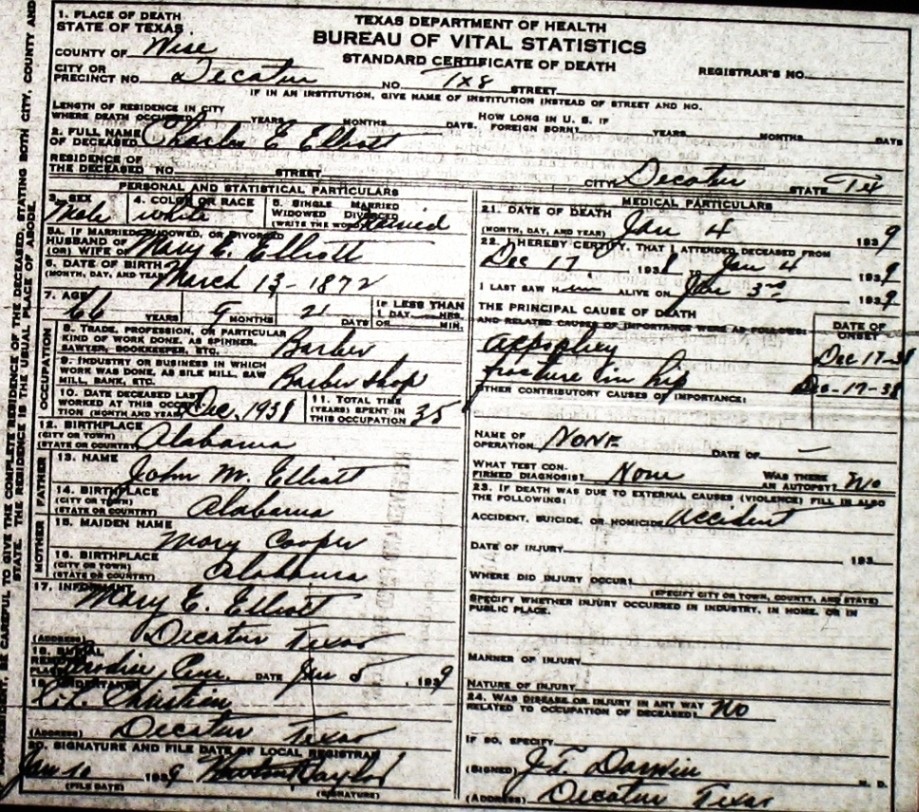 TEXAS DEPARTMENT OF HEALTH
BUREAU OF VITAL STATISTICS
STANDARD CERTIFICATE OF DEATH
1. PLACE OF DEATH
STATE OF TEXAS
COUNTY OF Wise
REGISTRAR'S NO.
CITY OR
PRECINCT NO. Decatur NO. STREET
IF IN AN INSTITUTION, GIVE NAME OF INSTITUTION INSTEAD OF STREET AND NO.
LENGTH OF RESIDENCE IN CITY
WHERE DEATH OCCURRED YEARS MONTHS DAYS. HOW LONG IN U. S. IF FOREIGN BORN? YEARS MONTHS DAYS
2. FULL NAME
OF DECEASED Charles E Elliott
RESIDENCE OF
THE DECEASED NO. STREET CITY Decatur STATE Tex
PERSONAL AND STATISTICAL PARTICULARS
3. SEX Male
4. COLOR OR RACE white
5. SINGLE MARRIED
WIDOWED DIVORCED
(WRITE THE WORD) Married
5A. IF MARRIED, WIDOWED, OR DIVORCED
HUSBAND OF
(OR) WIFE OF Mary E. Elliott
6. DATE OF BIRTH
(MONTH, DAY, AND YEAR) March 13 - 1872
7. AGE 66 YEARS 9 MONTHS 21 DAYS
IF LESS THAN
1 DAY HRS.
OR MIN.
OCCUPATION
8. TRADE, PROFESSION, OR PARTICULAR
KIND OF WORK DONE, AS SPINNER,
SAWYER, BOOKKEEPER, ETC. Barber
9. INDUSTRY OR BUSINESS IN WHICH
WORK WAS DONE, AS SILK MILL, SAW
MILL, BANK, ETC. Barber shop
10. DATE DECEASED LAST
WORKED AT THIS OCCUPA-
TION (MONTH AND YEAR) Dec. 1938
11. TOTAL TIME
(YEARS) SPENT IN
THIS OCCUPATION 35
12. BIRTHPLACE
(CITY OR TOWN)
(STATE OR COUNTRY) Alabama
FATHER
13. NAME John M. Elliott
14. BIRTHPLACE
(CITY OR TOWN)
(STATE OR COUNTRY) Alabama
MOTHER
15. MAIDEN NAME Mary Cooper
16. BIRTHPLACE
(CITY OR TOWN)
(STATE OR COUNTRY) Alabama
17. INFORMANT Mary E. Elliott
(ADDRESS) Decatur Texas
18. BURIAL
PLACE Cem. DATE Jan 5, 1939
19. UNDERTAKER Christian
(ADDRESS) Decatur Texas
20. SIGNATURE AND FILE DATE OF LOCAL REGISTRAR
Jan 10 1939
(FILE DATE) (SIGNATURE)
MEDICAL PARTICULARS
21. DATE OF DEATH
(MONTH, DAY, AND YEAR) Jan 4 1939
22. I HEREBY CERTIFY, THAT I ATTENDED DECEASED FROM
Dec 17 1938 Jan 4 1939
I LAST SAW Him ALIVE ON Jan 3rd 1939
THE PRINCIPAL CAUSE OF DEATH
AND RELATED CAUSES OF IMPORTANCE WERE AS FOLLOWS:
DATE OF
ONSET
Dec 17-38
fracture in hip Dec-17-38
OTHER CONTRIBUTORY CAUSES OF IMPORTANCE:
NAME OF
OPERATION NONE DATE OF —
WHAT TEST CON-
FIRMED DIAGNOSIS? None WAS THERE
AN AUTOPSY? No
23. IF DEATH WAS DUE TO EXTERNAL CAUSES (VIOLENCE) FILL IN ALSO
THE FOLLOWING:
ACCIDENT, SUICIDE, OR HOMICIDE Accident
DATE OF INJURY 193
WHERE DID INJURY OCCUR?
(SPECIFY CITY OR TOWN, COUNTY, AND STATE)
SPECIFY WHETHER INJURY OCCURRED IN INDUSTRY, IN HOME, OR IN
PUBLIC PLACE.
MANNER OF INJURY
NATURE OF INJURY
24. WAS DISEASE OR INJURY IN ANY WAY
RELATED TO OCCUPATION OF DECEASED? NO
IF SO, SPECIFY
(SIGNED) J.T. Darwin M. D.
(ADDRESS) Decatur Texas
BE CAREFUL TO GIVE THE COMPLETE RESIDENCE OF THE DECEASED, STATING BOTH CITY, COUNTY AND
STATE. THE RESIDENCE IS THE USUAL PLACE OF ABODE.